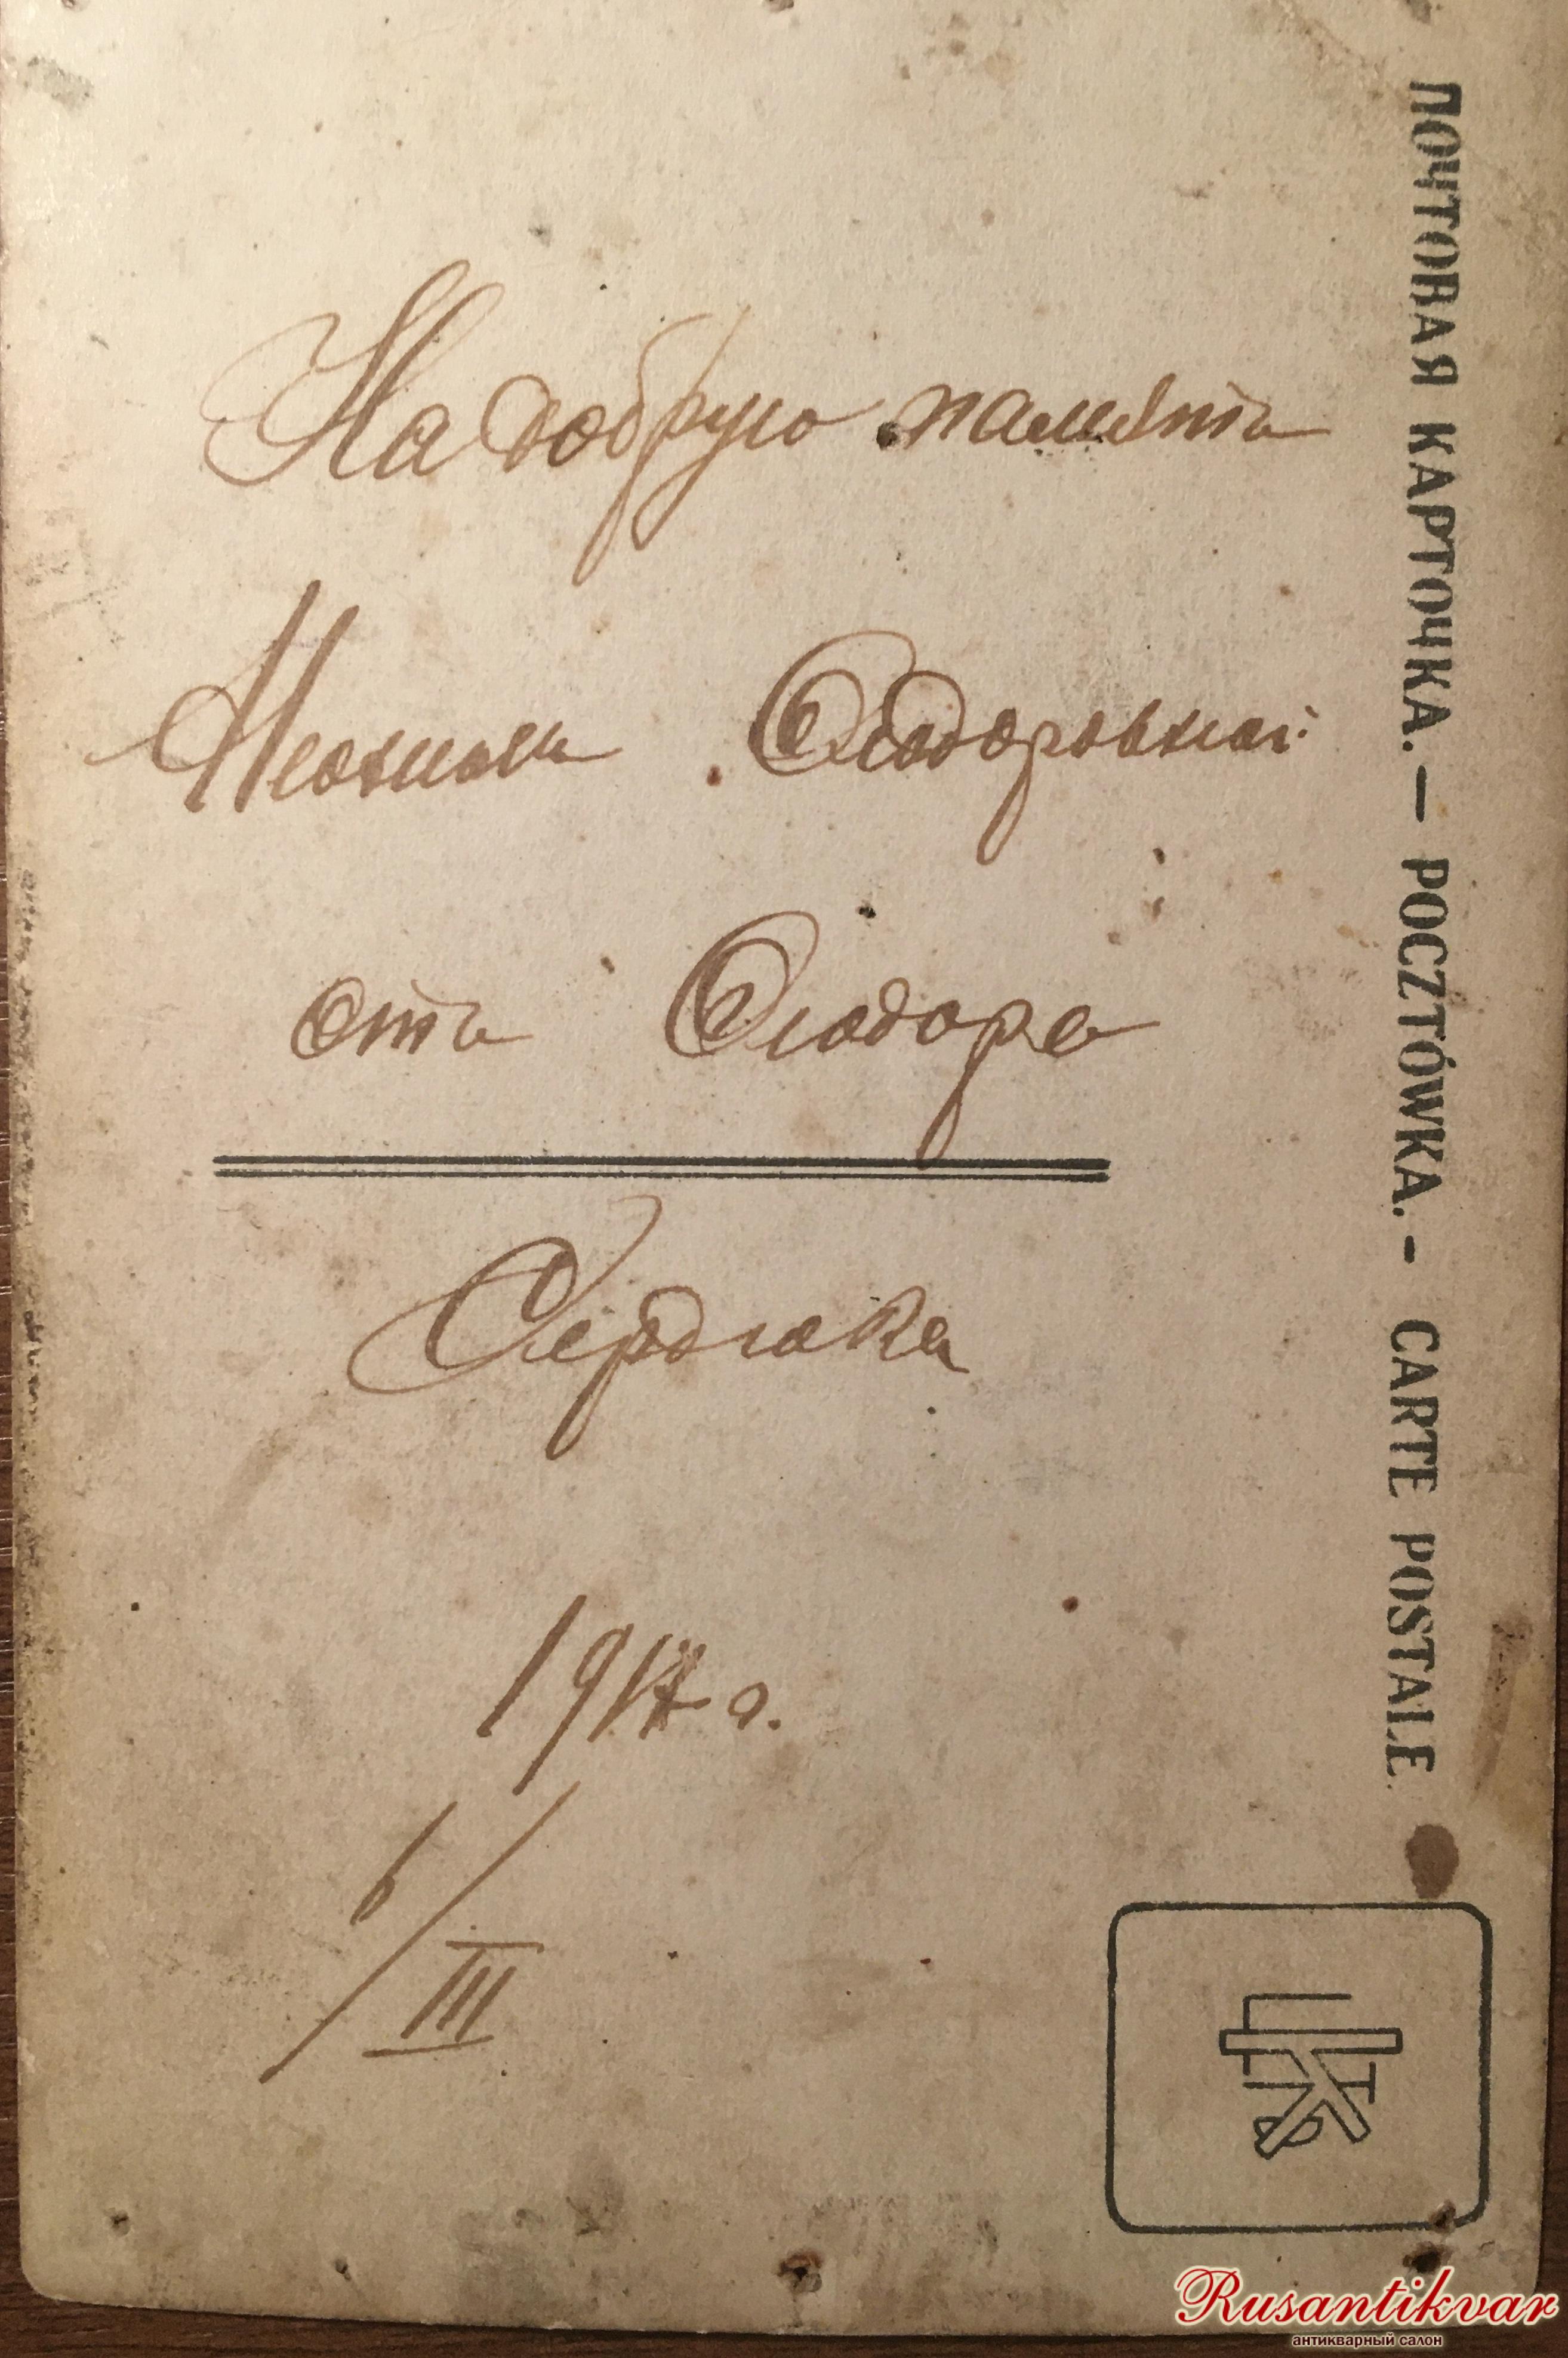 На добрую память
Ѳеодоровной
отъ Ѳеодора
Сердюка
1917 г.
6/III
ПОЧТОВАЯ КАРТОЧКА. — POCZTÓWKA. - CARTE POSTALE.
Rusantikvar
антикварный салон